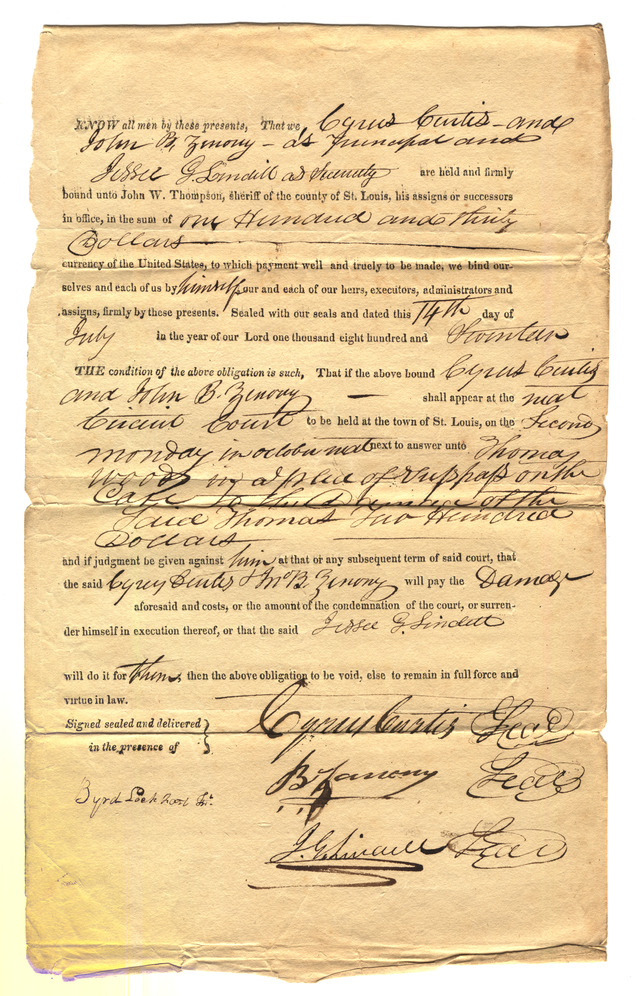 KNOW all men by these presents, That we, Cyrus Curtis - and
John B. Zenony - as Principal and
Jessee G. Lindell as Security are held and firmly
bound unto John W. Thompson, sheriff of the county of St. Louis, his assigns or successors
in office, in the sum of one Hundred and thirty
Dollars
currency of the United States, to which payment well and truely to be made, we bind our-
selves and each of us by himself, our and each of our heirs, executors, administrators and
assigns, firmly by these presents. Sealed with our seals and dated this 14th day of
July in the year of our Lord one thousand eight hundred and Seventeen
THE condition of the above obligation is such, That if the above bound Cyrus Curtis
and John B. Zenony — shall appear at the next
Circuit Court to be held at the town of St. Louis, on the Second
monday in october next next to answer unto Thomas
Wood in a plea of trespass on the
Case to the Damage of the
Said Thomas Two Hundred
Dollars
and if judgment be given against him at that or any subsequent term of said court, that
the said Cyrus Curtis & Jno B. Zenony will pay the Damage
aforesaid and costs, or the amount of the condemnation of the court, or surren-
der himself in execution thereof, or that the said Jessee G. Lindell
will do it for them, then the above obligation to be void, else to remain in full force and
virtue in law.
Signed sealed and delivered
in the presence of
Cyrus Curtis Seal
Seal
Byrd Lockhart
J. G. Lindell Seal